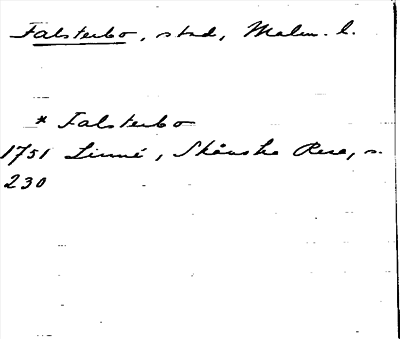 Falsterbo, stad, Malm. l.
* Falsterbo
1751 Linné, Skånska Resa, s.
230